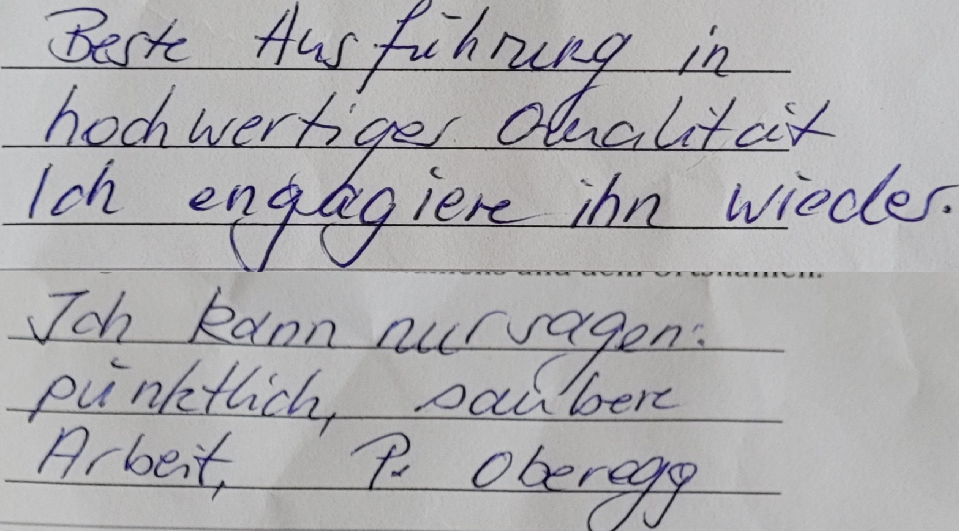 Beste Ausführung in
hochwertiger Qualität
Ich engagiere ihn wieder.
Ich kann nur sagen:
pünktlich, saubere
Arbeit, P. Oberegg